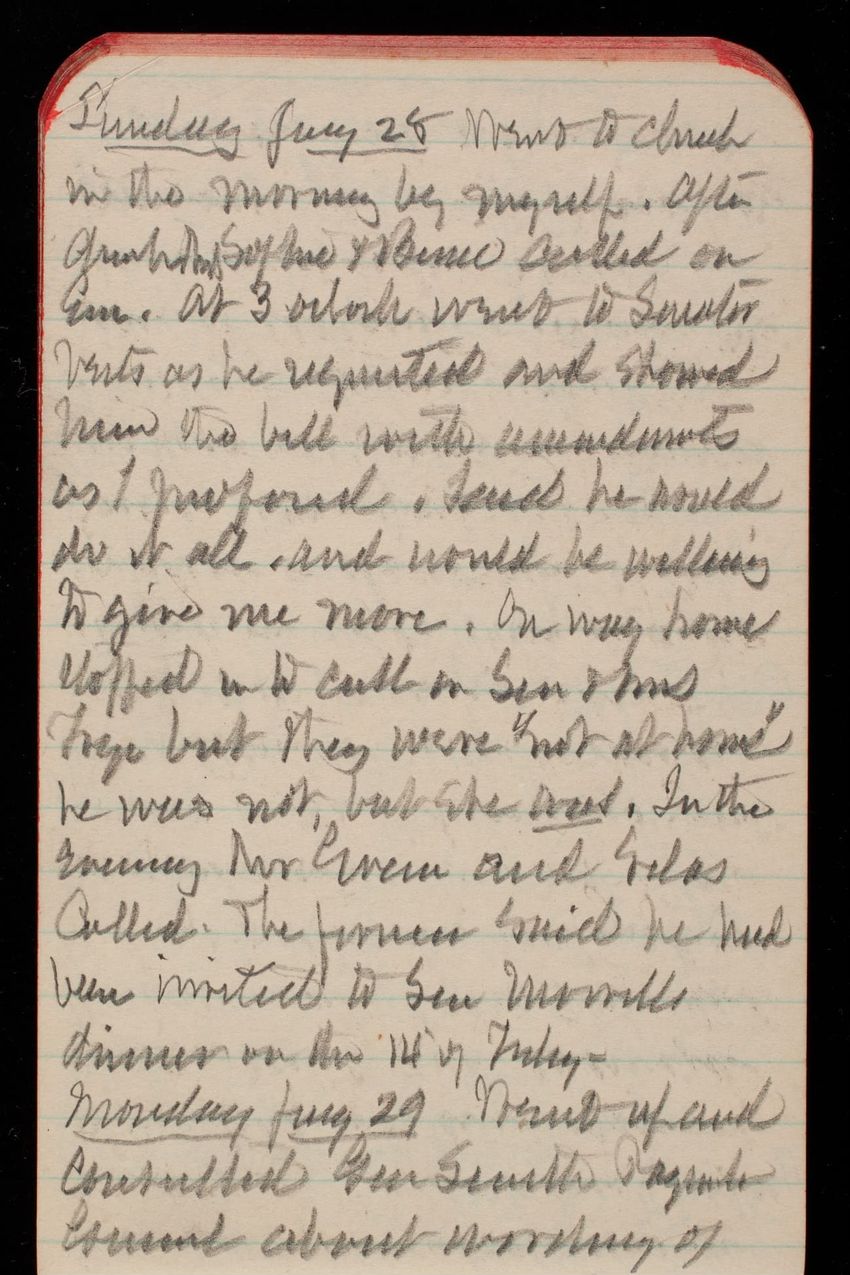 Sunday Jany 28 Went to church
in the morning by myself. After
Sophie & Bernie called on
Em. At 3 oclock went to Senator
Vests as he requested and showed
him the bill with amendments
as I proposed. Said he would
do it all. and would be willing
to give me more. On way home
stopped in to call on Gen & Mrs
but they were "not at home"
he was not, but she was. In the
evening Mr Green and Silas
Called. The former said he had
been invited to Gen
dinner on the 14 of Feby-
Monday Jany 29 Went up and
Consulted Gen Smith
Counsel about wording of